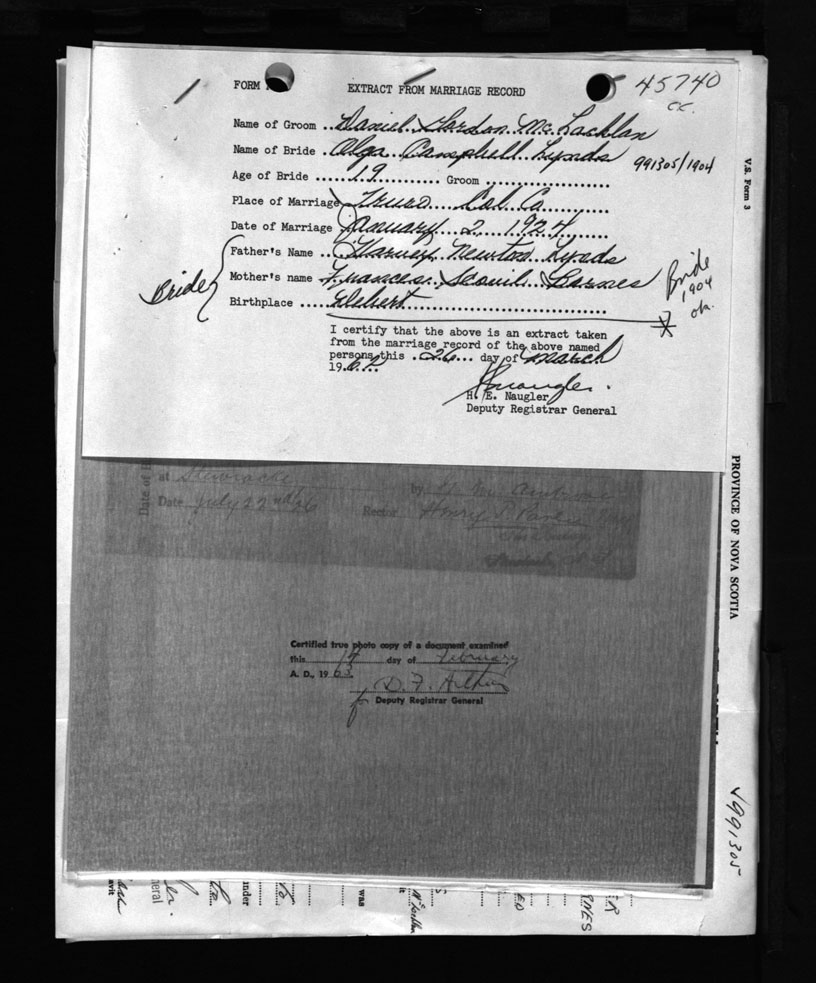 FORM
EXTRACT FROM MARRIAGE RECORD
45740
cc.
Name of Groom ..Daniel Gordon Mc Lachlan
Name of Bride ..Olga Campbell Lynds
991305/1904
Age of Bride ....19........... Groom ...................
Place of Marriage Truro Col. Co.
Date of Marriage January 2 1924
Bride
Father's Name ..Harvey Newton Lynds
Mother's name Frances Scovil Barnes
Birthplace .....Debert..............................
Bride
1904
ok.
I certify that the above is an extract taken
from the marriage record of the above named
persons this ..26... day of March
19.62..
HNaugler.
H. E. Naugler
Deputy Registrar General
V.S. Form 3
PROVINCE OF NOVA SCOTIA
√991305
Date of
at Stewiacke by
Date July 22nd/26 Rector Henry
Certified true photo copy of a document examined
this 14 day of February
A. D., 1963.
D. F. Arthur
f Deputy Registrar General
eral
under
was
ED
RNES